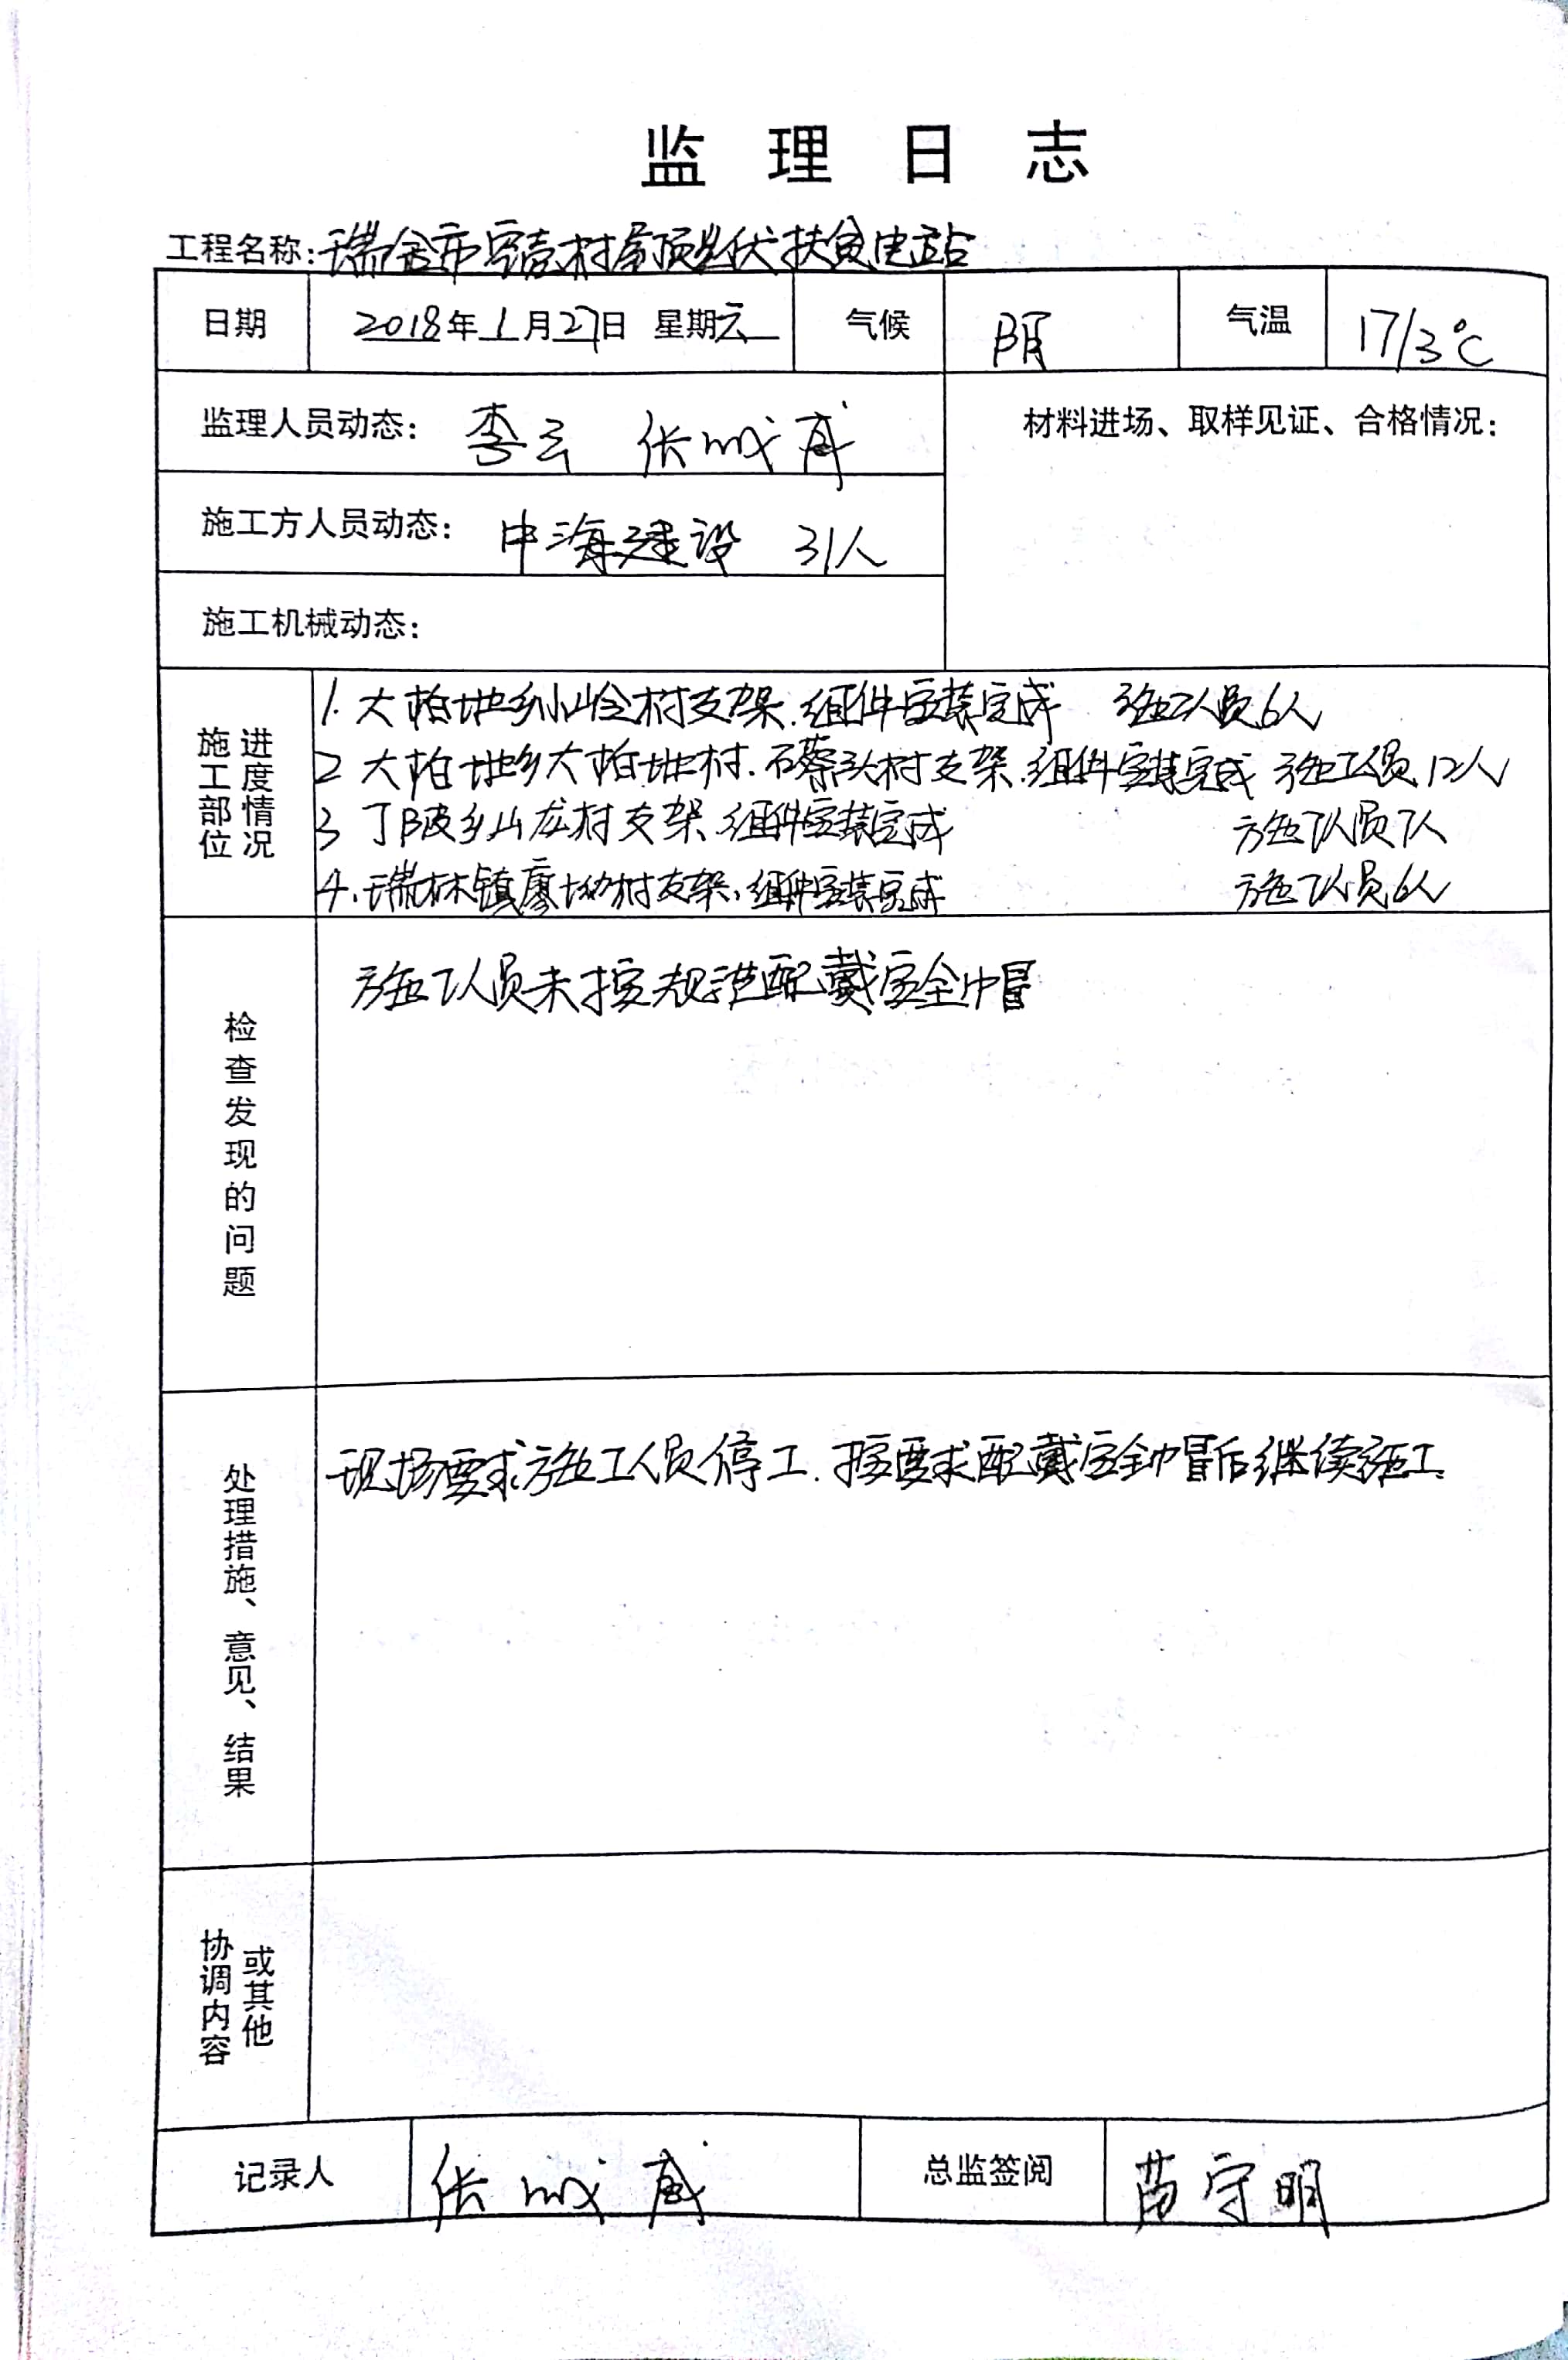 监理日志
工程名称:瑞金市宅壳村屋顶光伏扶贫电站
日期 2018年1月27日 星期六 气候 阴 气温 17/3℃
监理人员动态: 李云 张 材料进场、取样见证、合格情况:
施工方人员动态: 中海建设 31人
施工机械动态:
施工部位 进度情况
1. 大柏地乡小岭村支架.组件安装完成 施工人员6人
2 大柏地乡大柏地村.石头村支架.组件安装完成 施工人员12人
3 丁陂乡山龙村支架.组件安装完成 施工人员7人
4.瑞林镇廖坳村支架、组件安装完成 施工人员6人
检查发现的问题
施工人员未按规范配戴安全帽
处理措施、意见、结果
现场要求施工人员停工.按要求配戴安全帽后继续施工.
协调内容 或其他
记录人 张 总监签阅 苗守明